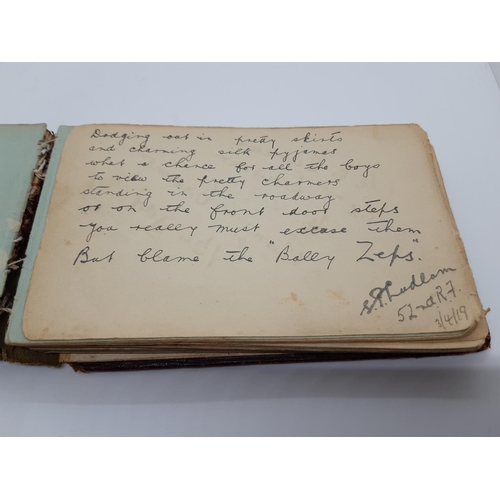 Dodging out in pretty skirts
and charming silk pyjamas
what a chance for all the boys
to view the pretty charmers
standing in the roadway
or on the front door steps
You really must excuse them
But blame the "Bally Zeps".
S.P. Ludlam
52nd R.F.
3/4/19